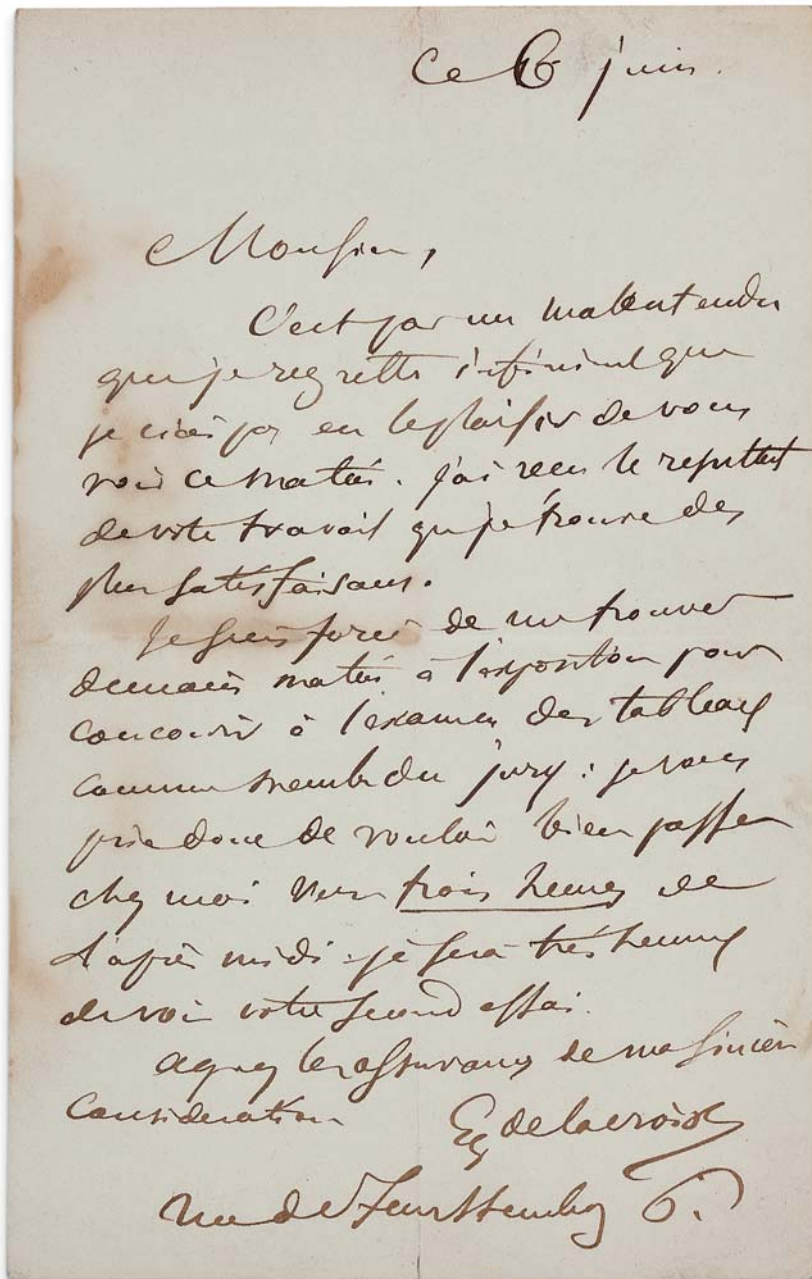 ce 6 juin.
Monsieur,
C'est par un malentendu
que je regrette infiniment que
je n'ai pas eu le plaisir de vous
voir ce matin. j'ai reçu le resultat
de votre travail que je trouve des
plus satisfaisans.
Je suis forcé de me trouver
demain matin à l'exposition pour
concourir à l'examen des tableaux
comme membre du jury : je vous
prie donc de vouloir bien passer
chez moi vers trois heures de
l'après midi. je serai très heureux
de voir votre second essai.
Agreez les assurances de ma sincère
consideration
Eg Delacroix
rue de Furstemberg 6.